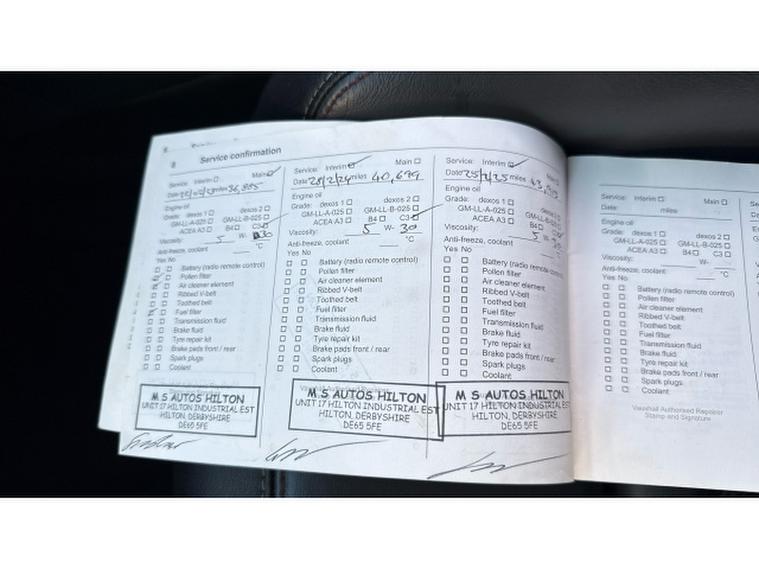 8 Service confirmation
Service: Interim ☐ Main ☑
Date miles 36,885
Engine oil
Grade: dexos 1 ☐ dexos 2 ☐
GM-LL-A-025 ☐ GM-LL-B-025 ☐
ACEA A3 ☐ B4 ☐ C3 ☑
Viscosity: 5 W- 30
Anti-freeze, coolant °C
Yes No
☐ ☐ Battery (radio remote control)
Pollen filter
Air cleaner element
☐ ☐ Ribbed V-belt
☐ ☐ Toothed belt
Fuel filter
☐ ☐ Transmission fluid
☐ ☐ Brake fluid
☐ ☐ Tyre repair kit
☐ ☐ Brake pads front / rear
☐ ☐ Spark plugs
☐ ☐ Coolant
M S AUTOS HILTON
UNIT 17 HILTON INDUSTRIAL EST
HILTON, DERBYSHIRE
DE65 5FE
Service: Interim ☑ Main ☐
Date 28/2/24 miles 40,699
Engine oil
Grade: dexos 1 ☐ dexos 2 ☐
GM-LL-A-025 ☐ GM-LL-B-025 ☐
ACEA A3 ☐ B4 ☐ C3 ☑
Viscosity: 5 W- 30
Anti-freeze, coolant °C
Yes No
☐ ☐ Battery (radio remote control)
☐ ☐ Pollen filter
☐ ☐ Air cleaner element
☐ ☐ Ribbed V-belt
☐ ☐ Toothed belt
☐ ☐ Fuel filter
☐ ☐ Transmission fluid
☐ ☐ Brake fluid
☐ ☐ Tyre repair kit
☐ ☐ Brake pads front / rear
☐ ☐ Spark plugs
☐ ☐ Coolant
M S AUTOS HILTON
UNIT 17 HILTON INDUSTRIAL EST
HILTON, DERBYSHIRE
DE65 5FE
Service: Interim ☑ Main
Date 25/2/25 miles
Engine oil
Grade: dexos 1 ☐ dexos 2 ☐
GM-LL-A-025 ☐ GM-LL-B-025
ACEA A3 ☐ B4 ☐ C3
Viscosity: 5 W-
Anti-freeze, coolant
Yes No
☐ ☐ Battery (radio remote control)
☐ ☐ Pollen filter
☐ ☐ Air cleaner element
☐ ☐ Ribbed V-belt
☐ ☐ Toothed belt
☐ ☐ Fuel filter
☐ ☐ Transmission fluid
☐ ☐ Brake fluid
☐ ☐ Tyre repair kit
☐ ☐ Brake pads front / rear
☐ ☐ Spark plugs
☐ ☐ Coolant
M S AUTOS HILTON
UNIT 17 HILTON INDUSTRIAL EST
HILTON, DERBYSHIRE
DE65 5FE
Service: Interim ☐ Main ☐
Date: miles
Engine oil
Grade: dexos 1 ☐ dexos 2 ☐
GM-LL-A-025 ☐ GM-LL-B-025 ☐
ACEA A3 ☐ B4 ☐ C3 ☐
Viscosity: W-
Anti-freeze, coolant °C
Yes No
☐ ☐ Battery (radio remote control)
☐ ☐ Pollen filter
☐ ☐ Air cleaner element
☐ ☐ Ribbed V-belt
☐ ☐ Toothed belt
☐ ☐ Fuel filter
☐ ☐ Transmission fluid
☐ ☐ Brake fluid
☐ ☐ Tyre repair kit
☐ ☐ Brake pads front / rear
☐ ☐ Spark plugs
☐ ☐ Coolant
Vauxhall Authorised Repairer
Stamp and Signature